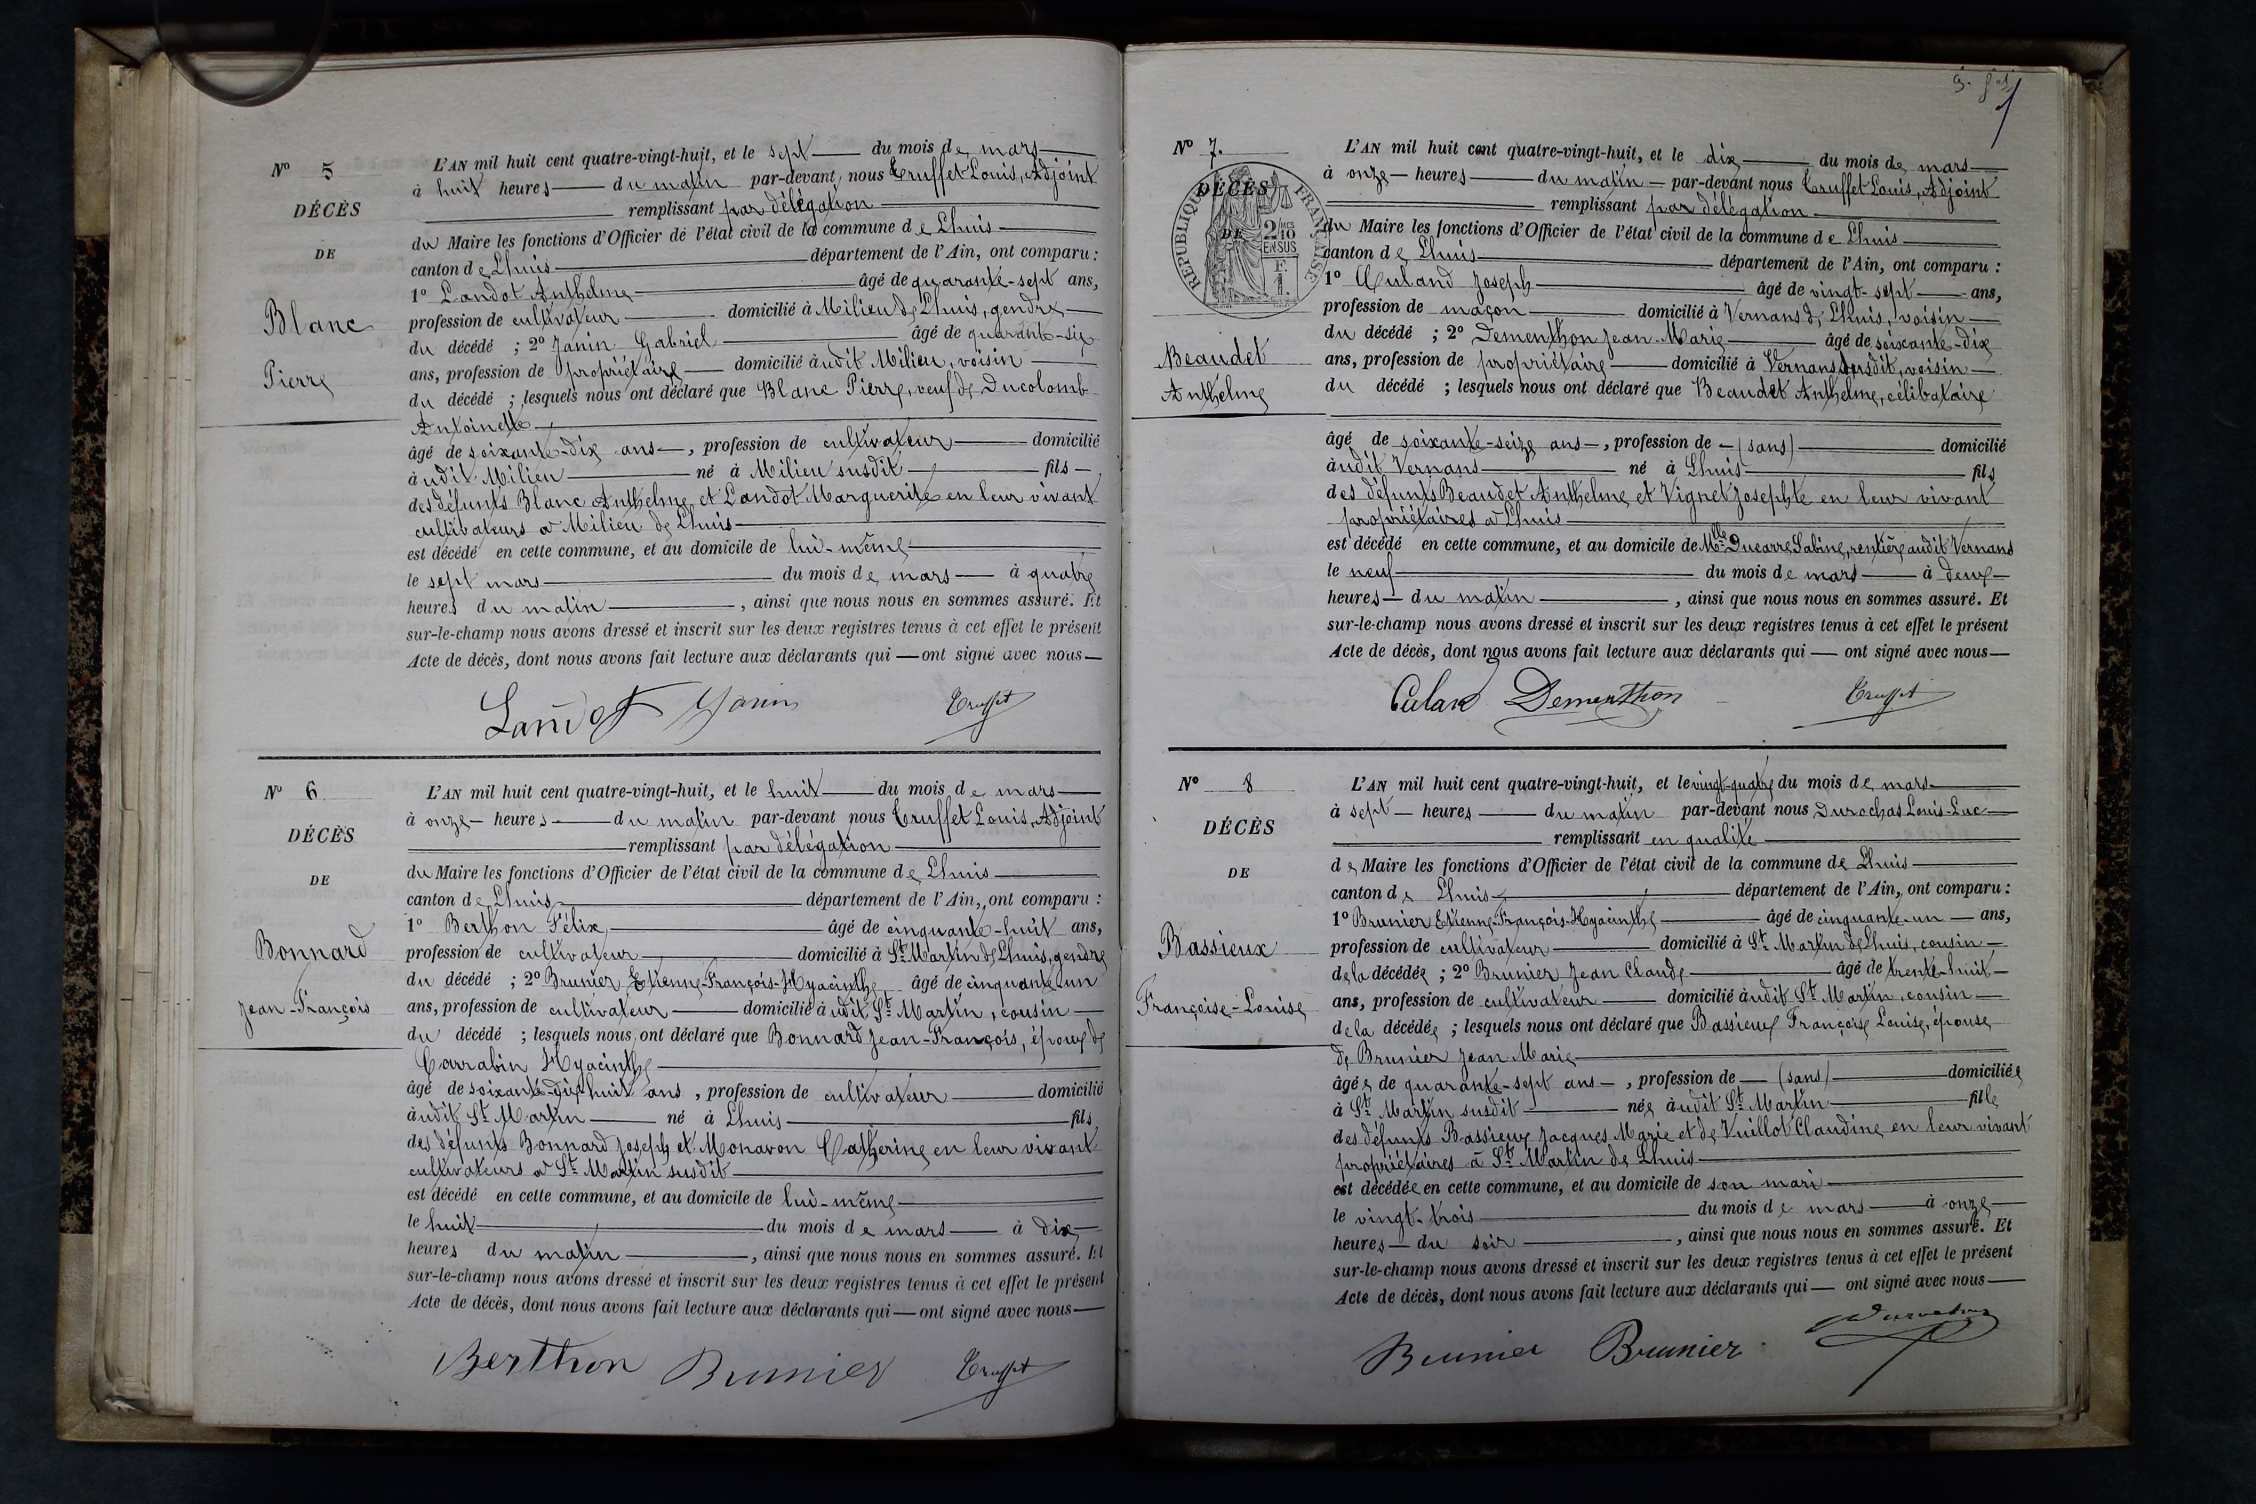 Nº 5
DÉCÈS
DE
Blanc
Pierre
L'AN mil huit cent quatre-vingt-huit, et le sept du mois de mars
à huit heures du matin par-devant nous Truffet Louis, Adjoint
remplissant par délégation
du Maire les fonctions d'Officier de l'état civil de la commune de Lhuis
canton de Lhuis département de l'Ain, ont comparu :
1º Landot Anthelme âgé de quarante-sept ans,
profession de cultivateur domicilié à Milieu de Lhuis, gendre
du décédé ; 2º Janin Gabriel âgé de quarante-six
ans, profession de propriétaire domicilié àudit Milieu, voisin
du décédé ; lesquels nous ont déclaré que Blanc Pierre, veuf de Ducolomb
Antoinette
âgé de soixante-dix ans, profession de cultivateur domicilié
àudit Milieu né à Milieu susdit fils
des défunts Blanc Anthelme et Landot Marguerite en leur vivant
cultivateurs à Milieu de Lhuis
est décédé en cette commune, et au domicile de lui-même
le sept mars du mois de mars à quatre
heures du matin, ainsi que nous nous en sommes assuré. Et
sur-le-champ nous avons dressé et inscrit sur les deux registres tenus à cet effet le présent
Acte de décès, dont nous avons fait lecture aux déclarants qui ont signé avec nous
Landot Janin Truffet
Nº 6
DÉCÈS
DE
Bonnard
Jean-François
L'AN mil huit cent quatre-vingt-huit, et le huit du mois de mars
à onze heures du matin par-devant nous Truffet Louis, Adjoint
remplissant par délégation
du Maire les fonctions d'Officier de l'état civil de la commune de Lhuis
canton de Lhuis département de l'Ain, ont comparu :
1º Berthon Félix âgé de cinquante-huit ans,
profession de cultivateur domicilié à St Martin de Lhuis, gendre
du décédé ; 2º Brunier Etienne-François-Hyacinthe âgé de cinquante un
ans, profession de cultivateur domicilié àudit St Martin, cousin
du décédé ; lesquels nous ont déclaré que Bonnard Jean-François, époux de
Carrabin Hyacinthe
âgé de soixante-dix huit ans, profession de cultivateur domicilié
àudit St Martin né à Lhuis fils
des défunts Bonnard Joseph et Monavon Catherine en leur vivant
cultivateurs à St Martin susdit
est décédé en cette commune, et au domicile de lui-même
le huit du mois de mars à dix
heures du matin, ainsi que nous nous en sommes assuré. Et
sur-le-champ nous avons dressé et inscrit sur les deux registres tenus à cet effet le présent
Acte de décès, dont nous avons fait lecture aux déclarants qui ont signé avec nous
Berthon Brunier Truffet
Nº 7.
DÉCÈS
DE
RÉPUBLIQUE FRANÇAISE
2/10 EN SUS
F. 1.
Beaudet
Anthelme
L'AN mil huit cent quatre-vingt-huit, et le dix du mois de mars
à onze heures du matin par-devant nous Truffet Louis, Adjoint
remplissant par délégation
du Maire les fonctions d'Officier de l'état civil de la commune de Lhuis
canton de Lhuis département de l'Ain, ont comparu :
1º Culand Joseph âgé de vingt-sept ans,
profession de maçon domicilié à Vernans de Lhuis, voisin
du décédé ; 2º Dementhon Jean-Marie âgé de soixante-dix
ans, profession de propriétaire domicilié à Vernans susdit, voisin
du décédé ; lesquels nous ont déclaré que Beaudet Anthelme, célibataire
âgé de soixante-seize ans, profession de (sans) domicilié
àudit Vernans né à Lhuis fils
des défunts Beaudet Anthelme et Vignet Josephte en leur vivant
propriétaires à Lhuis
est décédé en cette commune, et au domicile de Mlle Ducarre Sabine, rentière audit Vernans
le neuf du mois de mars à deux
heures du matin, ainsi que nous nous en sommes assuré. Et
sur-le-champ nous avons dressé et inscrit sur les deux registres tenus à cet effet le présent
Acte de décès, dont nous avons fait lecture aux déclarants qui ont signé avec nous
Culand Dementhon Truffet
Nº 8
DÉCÈS
DE
Bassieux
Françoise-Louise
L'AN mil huit cent quatre-vingt-huit, et le vingt-quatre du mois de mars
à sept heures du matin par-devant nous Durochas Louis-Luc
remplissant en qualité
de Maire les fonctions d'Officier de l'état civil de la commune de Lhuis
canton de Lhuis département de l'Ain, ont comparu :
1º Brunier Etienne-François-Hyacinthe âgé de cinquante-un ans,
profession de cultivateur domicilié à St Martin de Lhuis, cousin
de la décédée ; 2º Brunier Jean Claude âgé de trente-huit
ans, profession de cultivateur domicilié àudit St Martin, cousin
de la décédée ; lesquels nous ont déclaré que Bassieux Françoise Louise, épouse
de Brunier Jean Marie
âgée de quarante-sept ans, profession de (sans) domiciliée
à St Martin susdit née àudit St Martin fille
des défunts Bassieux Jacques Marie et de Vuillot Claudine en leur vivant
propriétaires à St Martin de Lhuis
est décédée en cette commune, et au domicile de son mari
le vingt-trois du mois de mars à onze
heures du soir, ainsi que nous nous en sommes assuré. Et
sur-le-champ nous avons dressé et inscrit sur les deux registres tenus à cet effet le présent
Acte de décès, dont nous avons fait lecture aux déclarants qui ont signé avec nous
Brunier Brunier Durochas